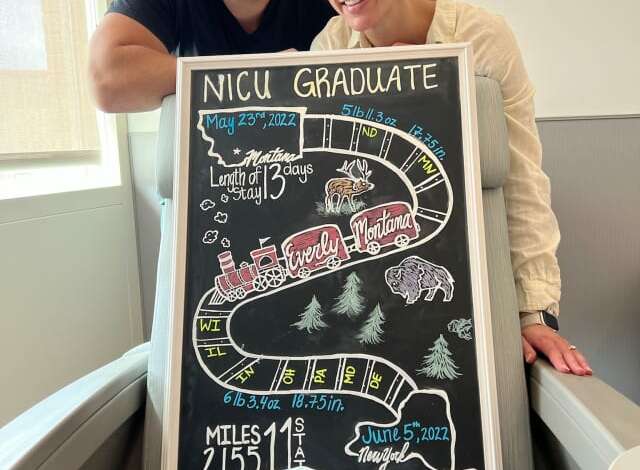 NICU GRADUATE
May 23rd, 2022
Montana
5lb 11.3oz
17.75in.
ND
MN
Length of Stay 13 days
Everly Montana
WI
IL
IN
OH
PA
MD
DE
6lb 3.4oz
18.75in.
MILES 2155
11
June 5th, 2022
New York